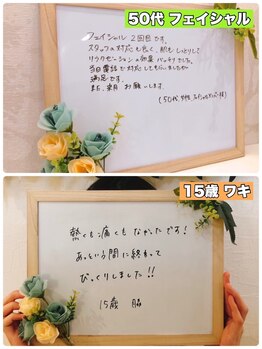 50代 フェイシャル
フェイシャル 2回目です。
スタッフの対応も良く、肌もしっとりして
リラクゼーションの効果 バッチリでした。
当日電話で対応してもらいましたが
満足です。
また、来月 お願いします。
(50代 女性
15歳 ワキ
熱くも痛くもなかったです!
あっという間に終わって
びっくりしました!!
15歳 脇